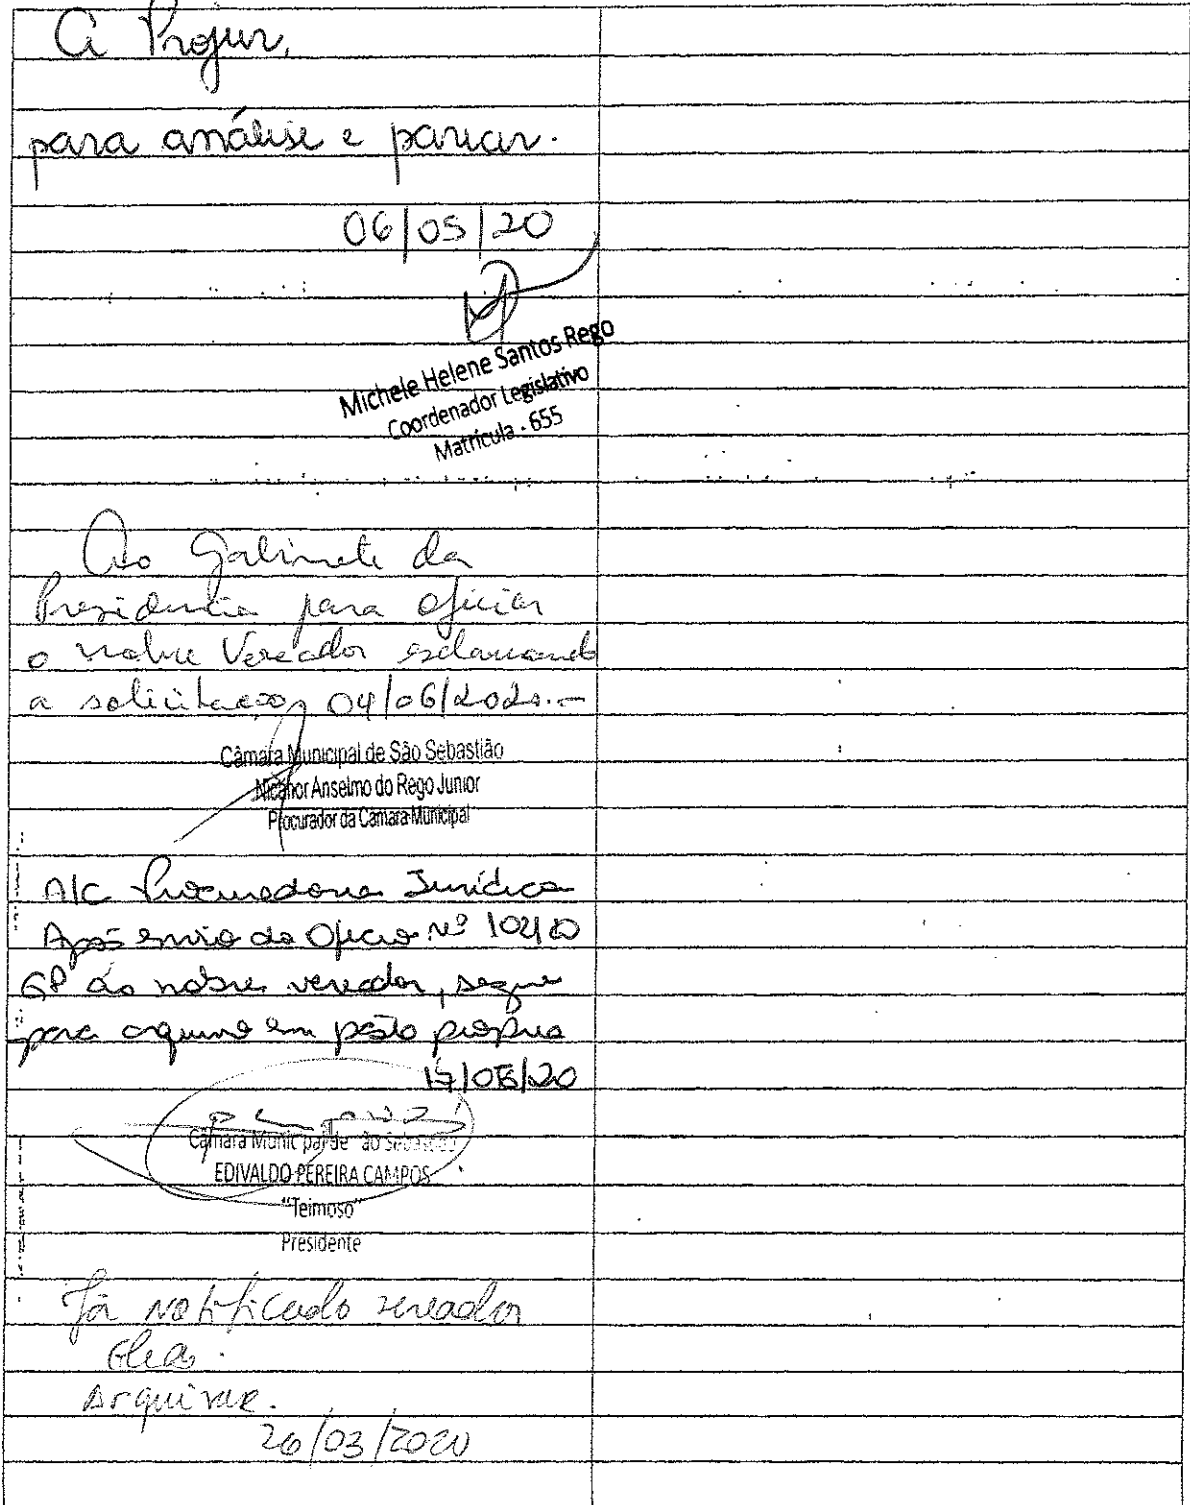 A Projur,
para análise e parecer.
06/05/20
Michele Helene Santos Rego
Coordenador Legislativo
Matrícula - 655
Ao Gabinete da
Presidencia para oficiar
o nobre Vereador esclarecendo
a solicitação, 04/06/2020.-
Câmara Municipal de São Sebastião
Nicanor Anselmo do Rego Junior
Procurador da Câmara Municipal
A/C Procuradoria Jurídica
Após envio do Ofício Nº
GP ao nobre vereador, segue
para arquivo em pasta própria
Câmara Municipal de São Sebastião
EDIVALDO PEREIRA CAMPOS
"Teimoso"
Presidente
Já notificado vereador
Arquivar.
26/03/2020